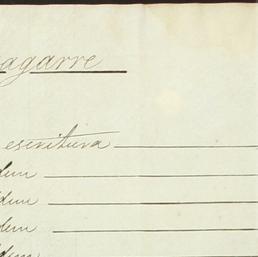 agarre
escritura
dem
dem
dem
dem